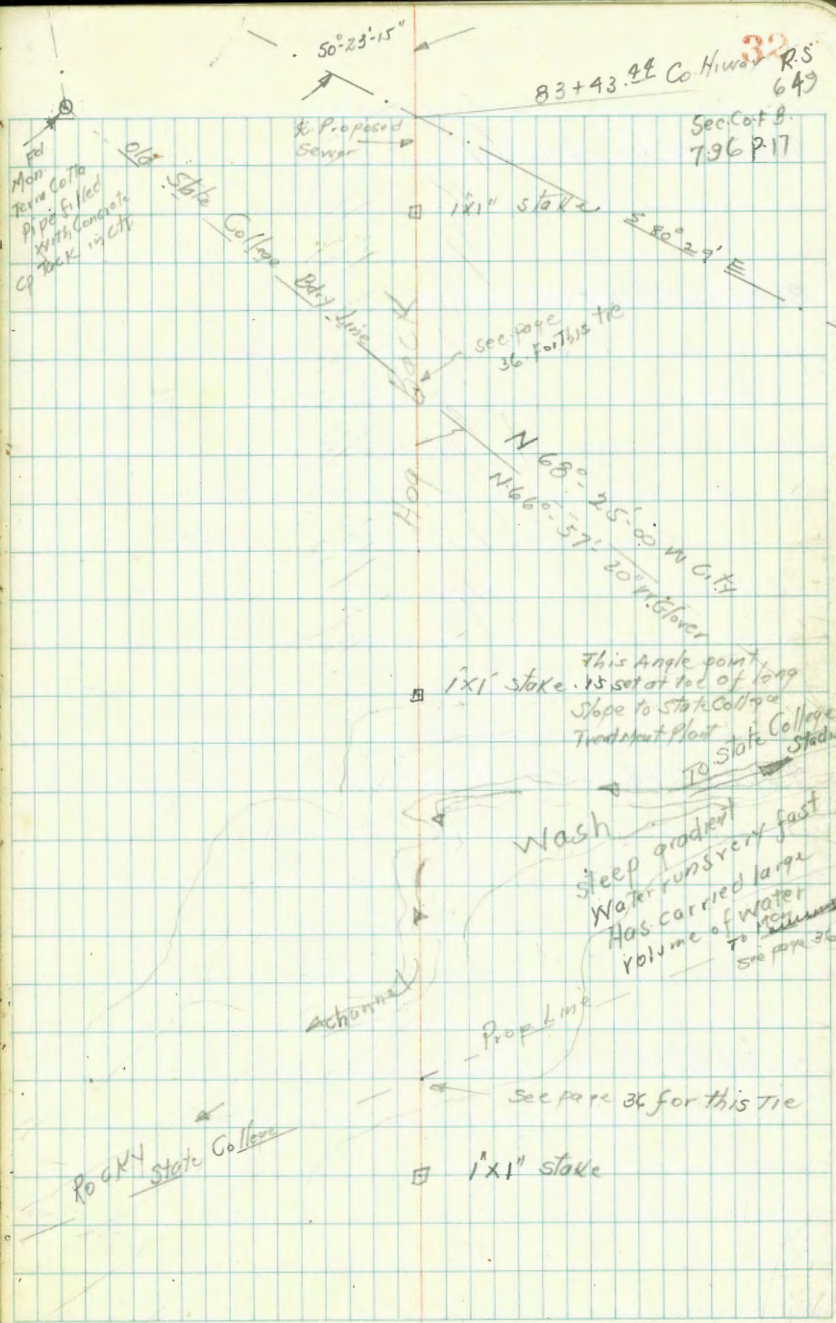 32
50°-23'-15"
83+43.44 Co. Hiway R.S
649
Sec. Co. F.B.
796 P.17
Fd.
Mon
Terra Cotta
Pipe filled
With Concrete
Tack in Ctr
℄ Proposed
Sewer
Old State College Bdry Line
1"x1" stake
S 80° 29' E
see page
36 For This tie
Hog Back
N 68°-25'-00 W City
N 66°-57'-20" W. Glover
1"x1" stake.
This Angle point
is set at toe of long
Slope to State College
Treatment Plant
To State College
Wash
Steep gradient
Water runs very fast
Has carried large
volume of water
To Mon
See page 36
channel
Prop Line
See page 36 for this Tie
Rocky
State College
1"x1" stake